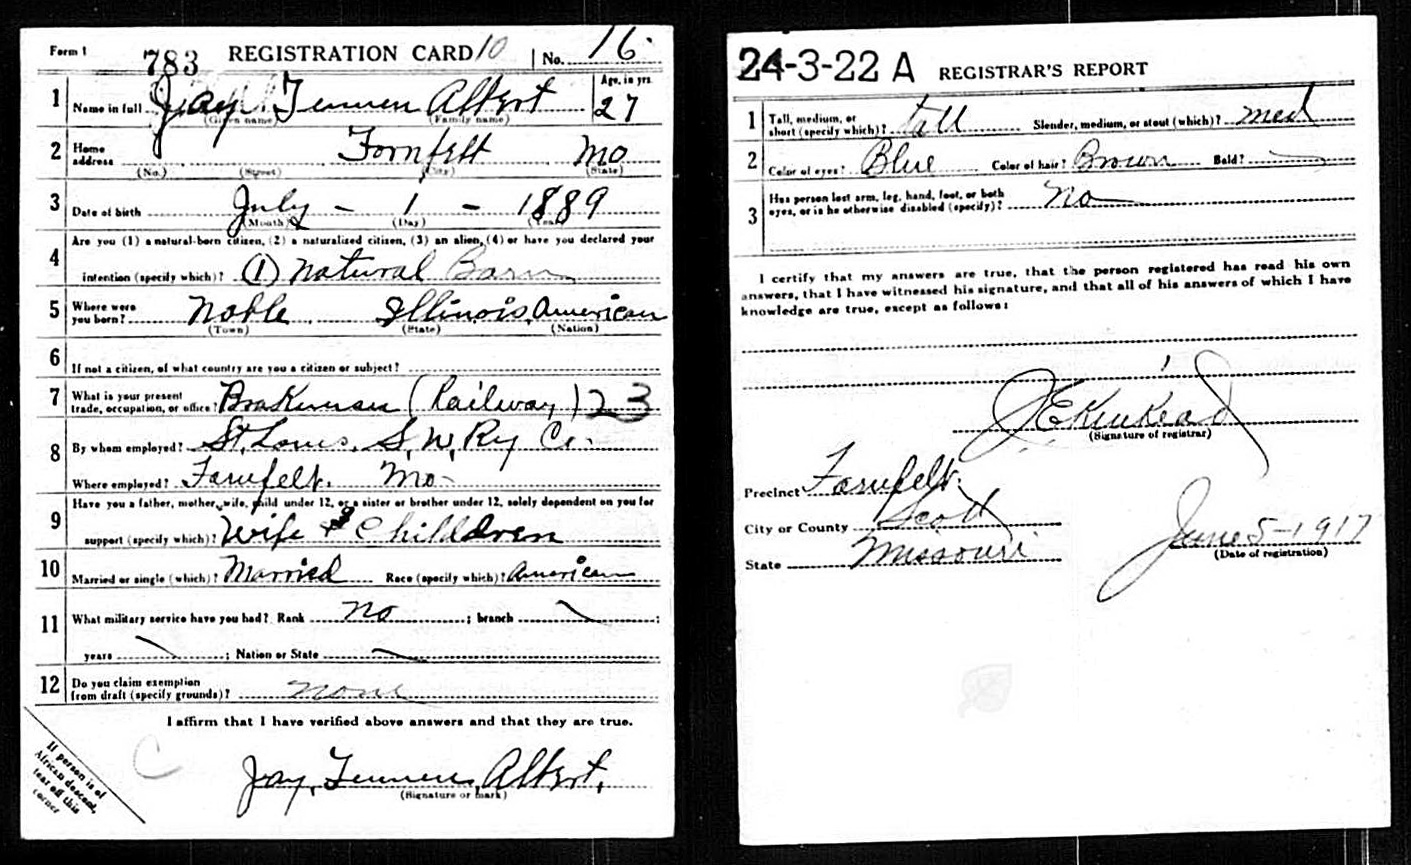 Form 1 783 REGISTRATION CARD 10 No. 16.
1 Name in full Jay Albert Age, in yrs. 27
(Given name) (Family name)
2 Home address Fornfelt Mo
(No.) (Street) (City) (State)
3 Date of birth July - 1 - 1889
(Month) (Day) (Year)
4 Are you (1) a natural-born citizen, (2) a naturalized citizen, (3) an alien, (4) or have you declared your
intention (specify which)? (1) Natural Born
5 Where were you born? Noble Illinois, American
(Town) (State) (Nation)
6 If not a citizen, of what country are you a citizen or subject?
7 What is your present trade, occupation, or office? Brakeman (Railway) 23
8 By whom employed? St. Louis, S, W, Ry Co.
Where employed? Fornfelt. Mo-
9 Have you a father, mother, wife, child under 12, or a sister or brother under 12, solely dependent on you for
support (specify which)? Wife & 3 Children
10 Married or single (which)? Married Race (specify which)? American
11 What military service have you had? Rank No ; branch ;
years ; Nation or State
12 Do you claim exemption from draft (specify grounds)? None
I affirm that I have verified above answers and that they are true.
C
Jay, Albert,
(Signature or mark)
If person is of
African descent,
tear off this
corner
24-3-22 A REGISTRAR'S REPORT
1 Tall, medium, or short (specify which)? tall Slender, medium, or stout (which)? med
2 Color of eyes? Blue Color of hair? Brown Bald?
3 Has person lost arm, leg, hand, foot, or both eyes, or is he otherwise disabled (specify)? No
I certify that my answers are true, that the person registered has read his own
answers, that I have witnessed his signature, and that all of his answers of which I have
knowledge are true, except as follows:
J E Kinkead
(Signature of registrar)
Precinct Fornfelt.
City or County Scott
State Missouri
June 5-1917
(Date of registration)